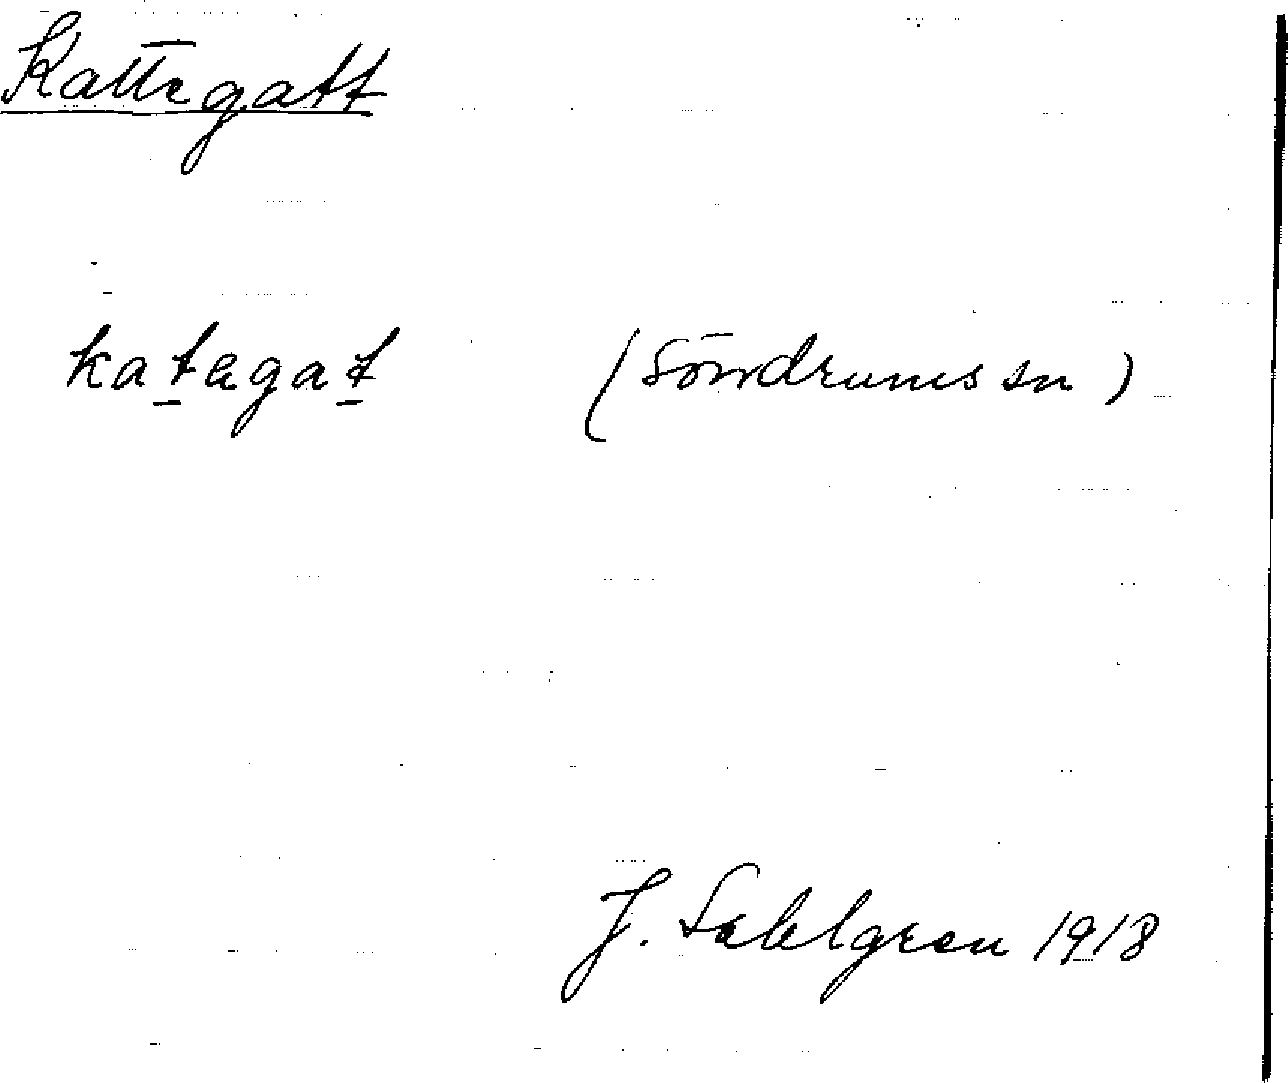 Kattegatt
kat̲aga̲t (Söndrums sn)
J. Sahlgren 1918